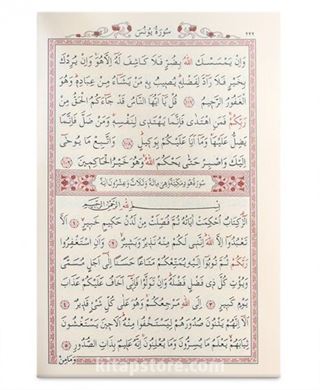 سورة يونس
٢٢٢
وَاِنْ يَمْسَسْكَ اللّٰهُ بِضُرٍّ فَلَا كَاشِفَ لَهُٓ اِلَّا هُوَۚ وَاِنْ يُرِدْكَ
بِخَيْرٍ فَلَا رَٓادَّ لِفَضْلِهٖؕ يُصٖيبُ بِهٖ مَنْ يَشَٓاءُ مِنْ عِبَادِهٖؕ وَهُوَ
الْغَفُورُ الرَّحٖيمُ ﴿١٠٧﴾ قُلْ يَٓا اَيُّهَا النَّاسُ قَدْ جَٓاءَكُمُ الْحَقُّ مِنْ
رَبِّكُمْۚ فَمَنِ اهْتَدٰى فَاِنَّمَا يَهْتَدٖي لِنَفْسِهٖۚ وَمَنْ ضَلَّ فَاِنَّمَا
يَضِلُّ عَلَيْهَاۚ وَمَٓا اَنَا۬ عَلَيْكُمْ بِوَكٖيلٍؕ ﴿١٠٨﴾ وَاتَّبِعْ مَا يُوحٰٓى
اِلَيْكَ وَاصْبِرْ حَتّٰى يَحْكُمَ اللّٰهُۚ وَهُوَ خَيْرُ الْحَاكِمٖينَ ﴿١٠٩﴾
سورة هود مكية وهى مائة وثلاث وعشرون اية
بِسْمِ اللّٰهِ الرَّحْمٰنِ الرَّحٖيمِ
الٓرٰ۠ كِتَابٌ اُحْكِمَتْ اٰيَاتُهُ ثُمَّ فُصِّلَتْ مِنْ لَدُنْ حَكٖيمٍ خَبٖيرٍۙ ﴿١﴾ اَلَّا
تَعْبُدُٓوا اِلَّا اللّٰهَؕ اِنَّنٖي لَكُمْ مِنْهُ نَذٖيرٌ وَبَشٖيرٌۙ ﴿٢﴾ وَاَنِ اسْتَغْفِرُوا
رَبَّكُمْ ثُمَّ تُوبُٓوا اِلَيْهِ يُمَتِّعْكُمْ مَتَاعًا حَسَنًا اِلٰٓى اَجَلٍ مُسَمًّى
وَيُؤْتِ كُلَّ ذٖي فَضْلٍ فَضْلَهُؕ وَاِنْ تَوَلَّوْا فَاِنّٖٓي اَخَافُ عَلَيْكُمْ عَذَابَ
يَوْمٍ كَبٖيرٍ ﴿٣﴾ اِلَى اللّٰهِ مَرْجِعُكُمْۚ وَهُوَ عَلٰى كُلِّ شَيْءٍ قَدٖيرٌ ﴿٤﴾
اَلَٓا اِنَّهُمْ يَثْنُونَ صُدُورَهُمْ لِيَسْتَخْفُوا مِنْهُؕ اَلَا حٖينَ يَسْتَغْشُونَ
ثِيَابَهُمْۙ يَعْلَمُ مَا يُسِرُّونَ وَمَا يُعْلِنُونَۚ اِنَّهُ عَلٖيمٌ بِذَاتِ الصُّدُورِ ﴿٥﴾
وَمَا مِنْ
kitapstore.com